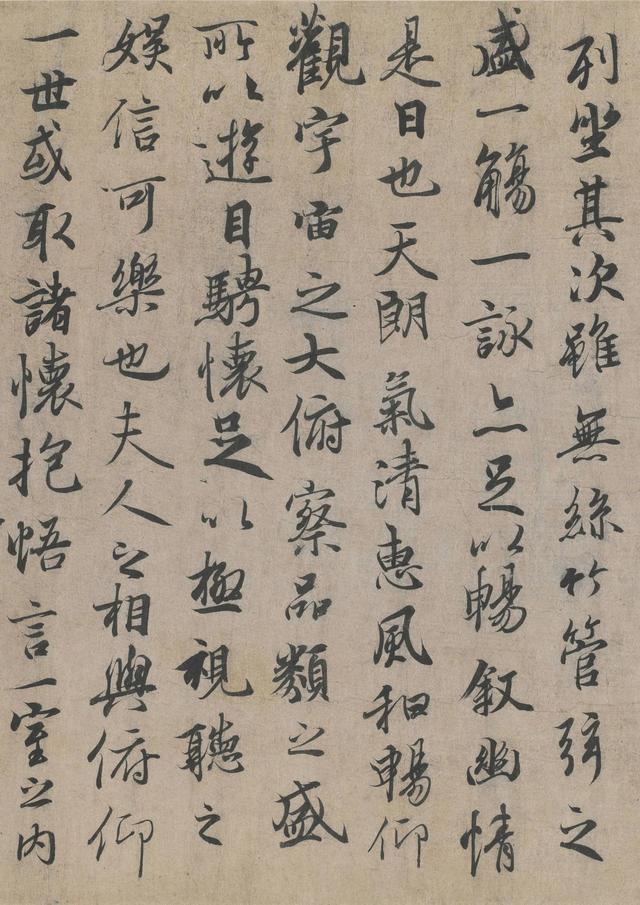 列坐其次雖無絲竹管弦之
盛一觴一詠亦足以暢叙幽情
是日也天朗氣清惠風和暢仰
觀宇宙之大俯察品類之盛
所以遊目騁懷足以極視聽之
娛信可樂也夫人之相與俯仰
一世或取諸懷抱悟言一室之內